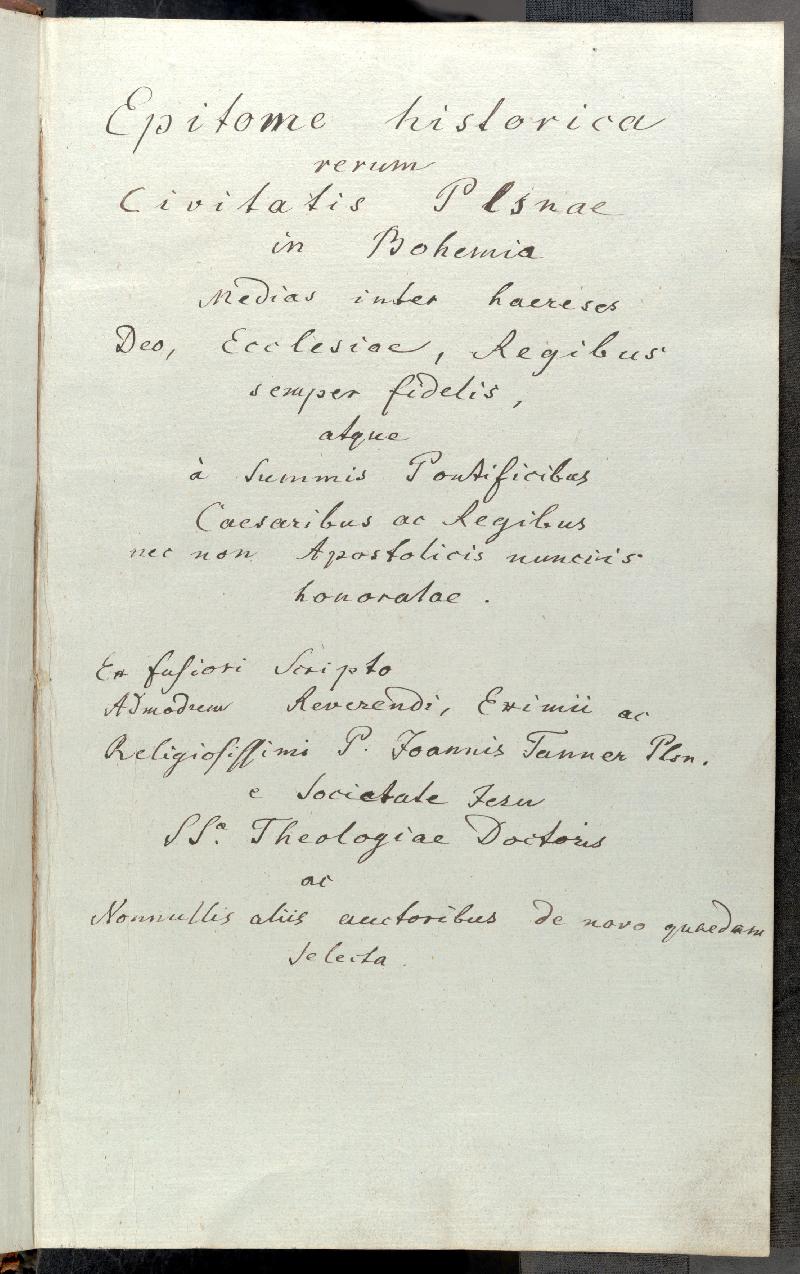 Epitome historica
rerum
Civitatis Plsnae
in Bohemia
Medias inter haereses
Deo, Ecclesiae, Regibus
semper fidelis,
atque
à Summis Pontificibus
Caesaribus ac Regibus
nec non Apostolicis nunciis
honoratae.
Ex fusiori Scripto
Admodum Reverendi, Eximii ac
Religiosissimi P. Joannis Tanner Plsn.
e Societate Jesu
SSae Theologiae Doctoris
ac
Nonnullis aliis auctoribus de novo quaedam
selecta.